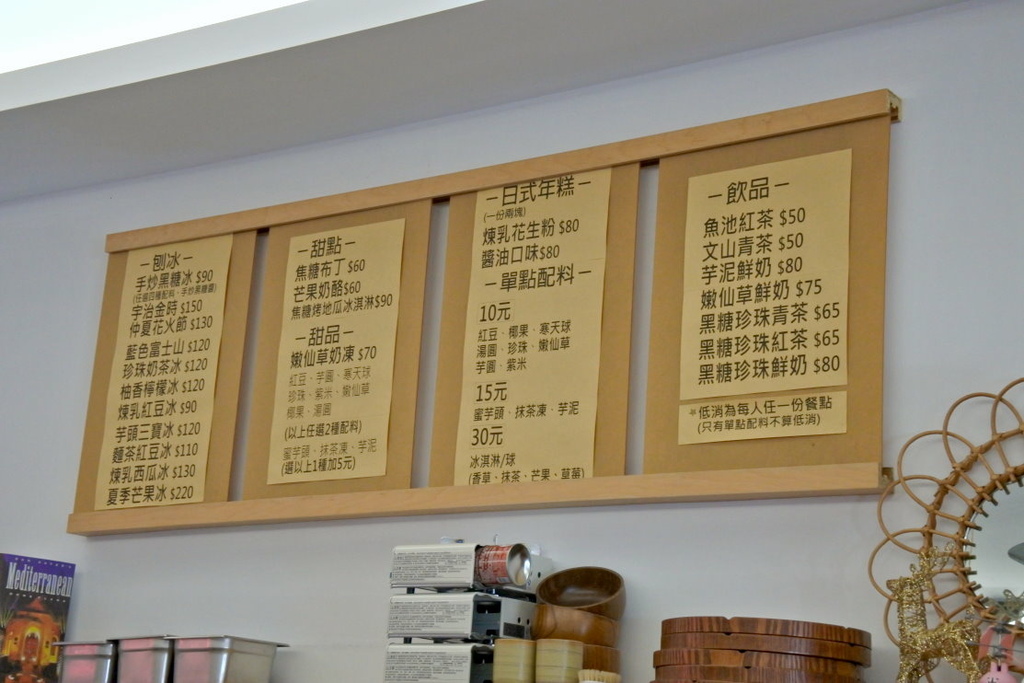 －刨冰－
手炒黑糖冰 $90
(任選四種配料、手炒黑糖漿)
宇治金時 $150
仲夏花火節 $130
藍色富士山 $120
珍珠奶茶冰 $120
柚香檸檬冰 $120
煉乳紅豆冰 $90
芋頭三寶冰 $120
麵茶紅豆冰 $110
煉乳西瓜冰 $130
夏季芒果冰 $220
－甜點－
焦糖布丁 $60
芒果奶酪$60
焦糖烤地瓜冰淇淋$90
－甜品－
嫩仙草奶凍 $70
紅豆、芋圓、寒天球
珍珠、紫米、嫩仙草
椰果、湯圓
(以上任選2種配料)
蜜芋頭、抹茶凍、芋泥
(選以上1種加5元)
－日式年糕－
(一份兩塊)
煉乳花生粉 $80
醬油口味$80
－單點配料－
10元
紅豆、椰果、寒天球
湯圓、珍珠、嫩仙草
芋圓、紫米
15元
蜜芋頭、抹茶凍、芋泥
30元
冰淇淋/球
(香草、抹茶、芒果、草莓)
－飲品－
魚池紅茶 $50
文山青茶 $50
芋泥鮮奶 $80
嫩仙草鮮奶 $75
黑糖珍珠青茶 $65
黑糖珍珠紅茶 $65
黑糖珍珠鮮奶 $80
*低消為每人任一份餐點
(只有單點配料不算低消)
Mediterranean